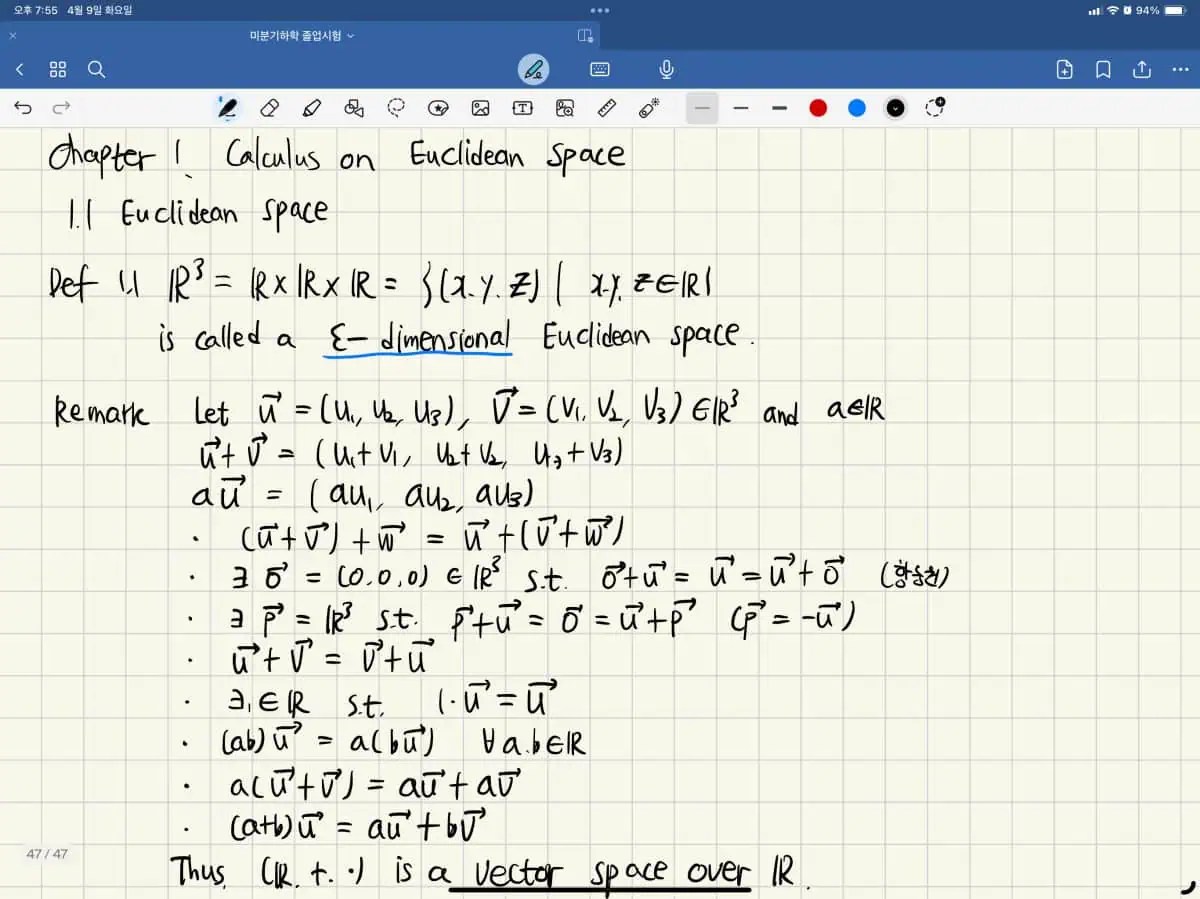 오후 7:55 4월 9일 화요일
94%
미분기하학 졸업시험
Chapter 1. Calculus on Euclidean space
1.1 Euclidean space
Def 1.1 ℝ³ = ℝ×ℝ×ℝ = {(x.y.z) | x.y.z∈ℝ}
is called a ε-dimensional Euclidean space.
Remark Let u⃗ = (u₁, u₂, u₃), v⃗ = (v₁, v₂, v₃) ∈ℝ³ and a∈ℝ
u⃗+v⃗ = (u₁+v₁, u₂+v₂, u₃+v₃)
au⃗ = (au₁, au₂, au₃)
· (u⃗+v⃗)+w⃗ = u⃗+(v⃗+w⃗)
· ∃ 0⃗ = (0,0,0) ∈ ℝ³ s.t. 0⃗+u⃗ = u⃗ = u⃗+0⃗ (항등원)
· ∃ p⃗ = ℝ³ s.t. p⃗+u⃗ = 0⃗ = u⃗+p⃗ (p⃗ = -u⃗)
· u⃗+v⃗ = v⃗+u⃗
· ∃₁∈ℝ s.t. 1·u⃗ = u⃗
· (ab)u⃗ = a(bu⃗) ∀a.b∈ℝ
· a(u⃗+v⃗) = au⃗+av⃗
· (a+b)u⃗ = au⃗+bv⃗
47 / 47
Thus, (ℝ.+.·) is a vector space over ℝ.